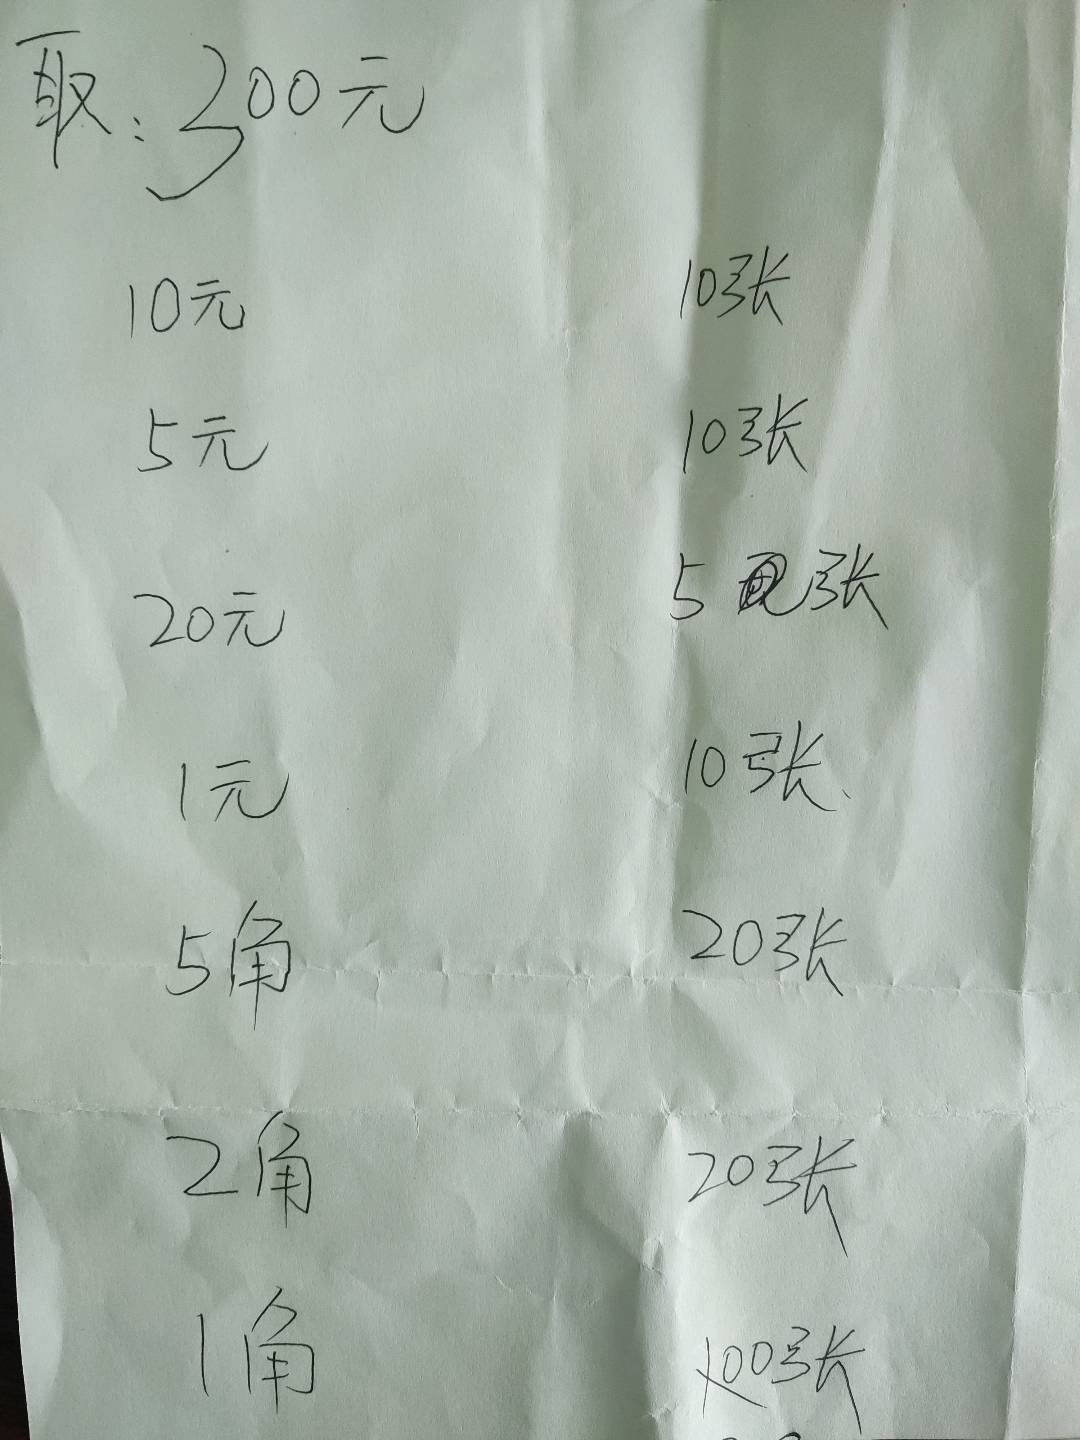 取:300元
10元 10张
5元 10张
20元 5 张
1元 10张
5角 20张
2角 20张
1角 100张